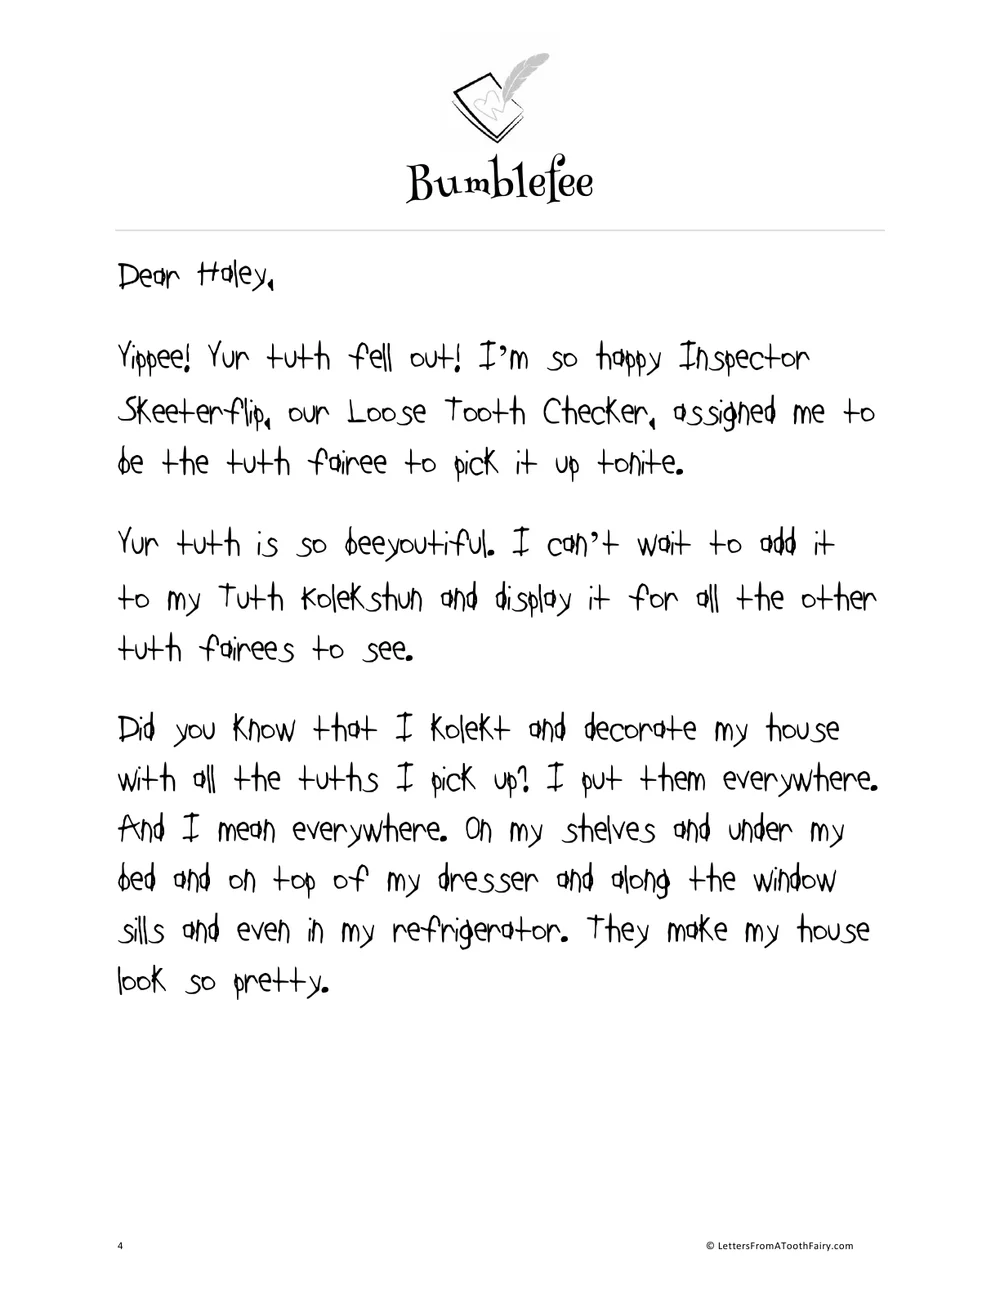 Bumblefee
Dear Haley,
Yippee! Yur tuth fell out! I'm so happy Inspector
Skeeterflip, our Loose Tooth Checker, assigned me to
be the tuth fairee to pick it up tonite.
Yur tuth is so beeyoutiful. I can't wait to add it
to my Tuth Kolekshun and display it for all the other
tuth fairees to see.
Did you know that I kolekt and decorate my house
with all the tuths I pick up? I put them everywhere.
And I mean everywhere. On my shelves and under my
bed and on top of my dresser and along the window
sills and even in my refrigerator. They make my house
look so pretty.
4 © LettersFromAToothFairy.com